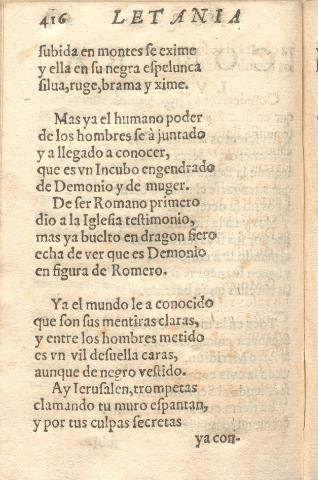 416 LETANIA
subida en montes se exime
y ella en su negra espelunca
silua,ruge,brama y xime.
Mas ya el humano poder
de los hombres se à juntado
y a llegado a conocer,
que es vn Incubo engendrado
de Demonio y de muger.
De ser Romano primero
dio a la Iglesia testimonio,
mas ya buelto en dragon fiero
echa de ver que es Demonio
en figura de Romero.
Ya el mundo le a conocido
que son sus mentiras claras,
y entre los hombres metido
es vn vil desuella caras,
aunque de negro vestido.
Ay Ierusalen,trompetas
clamando tu muro espantan,
y por tus culpas secretas
ya con-